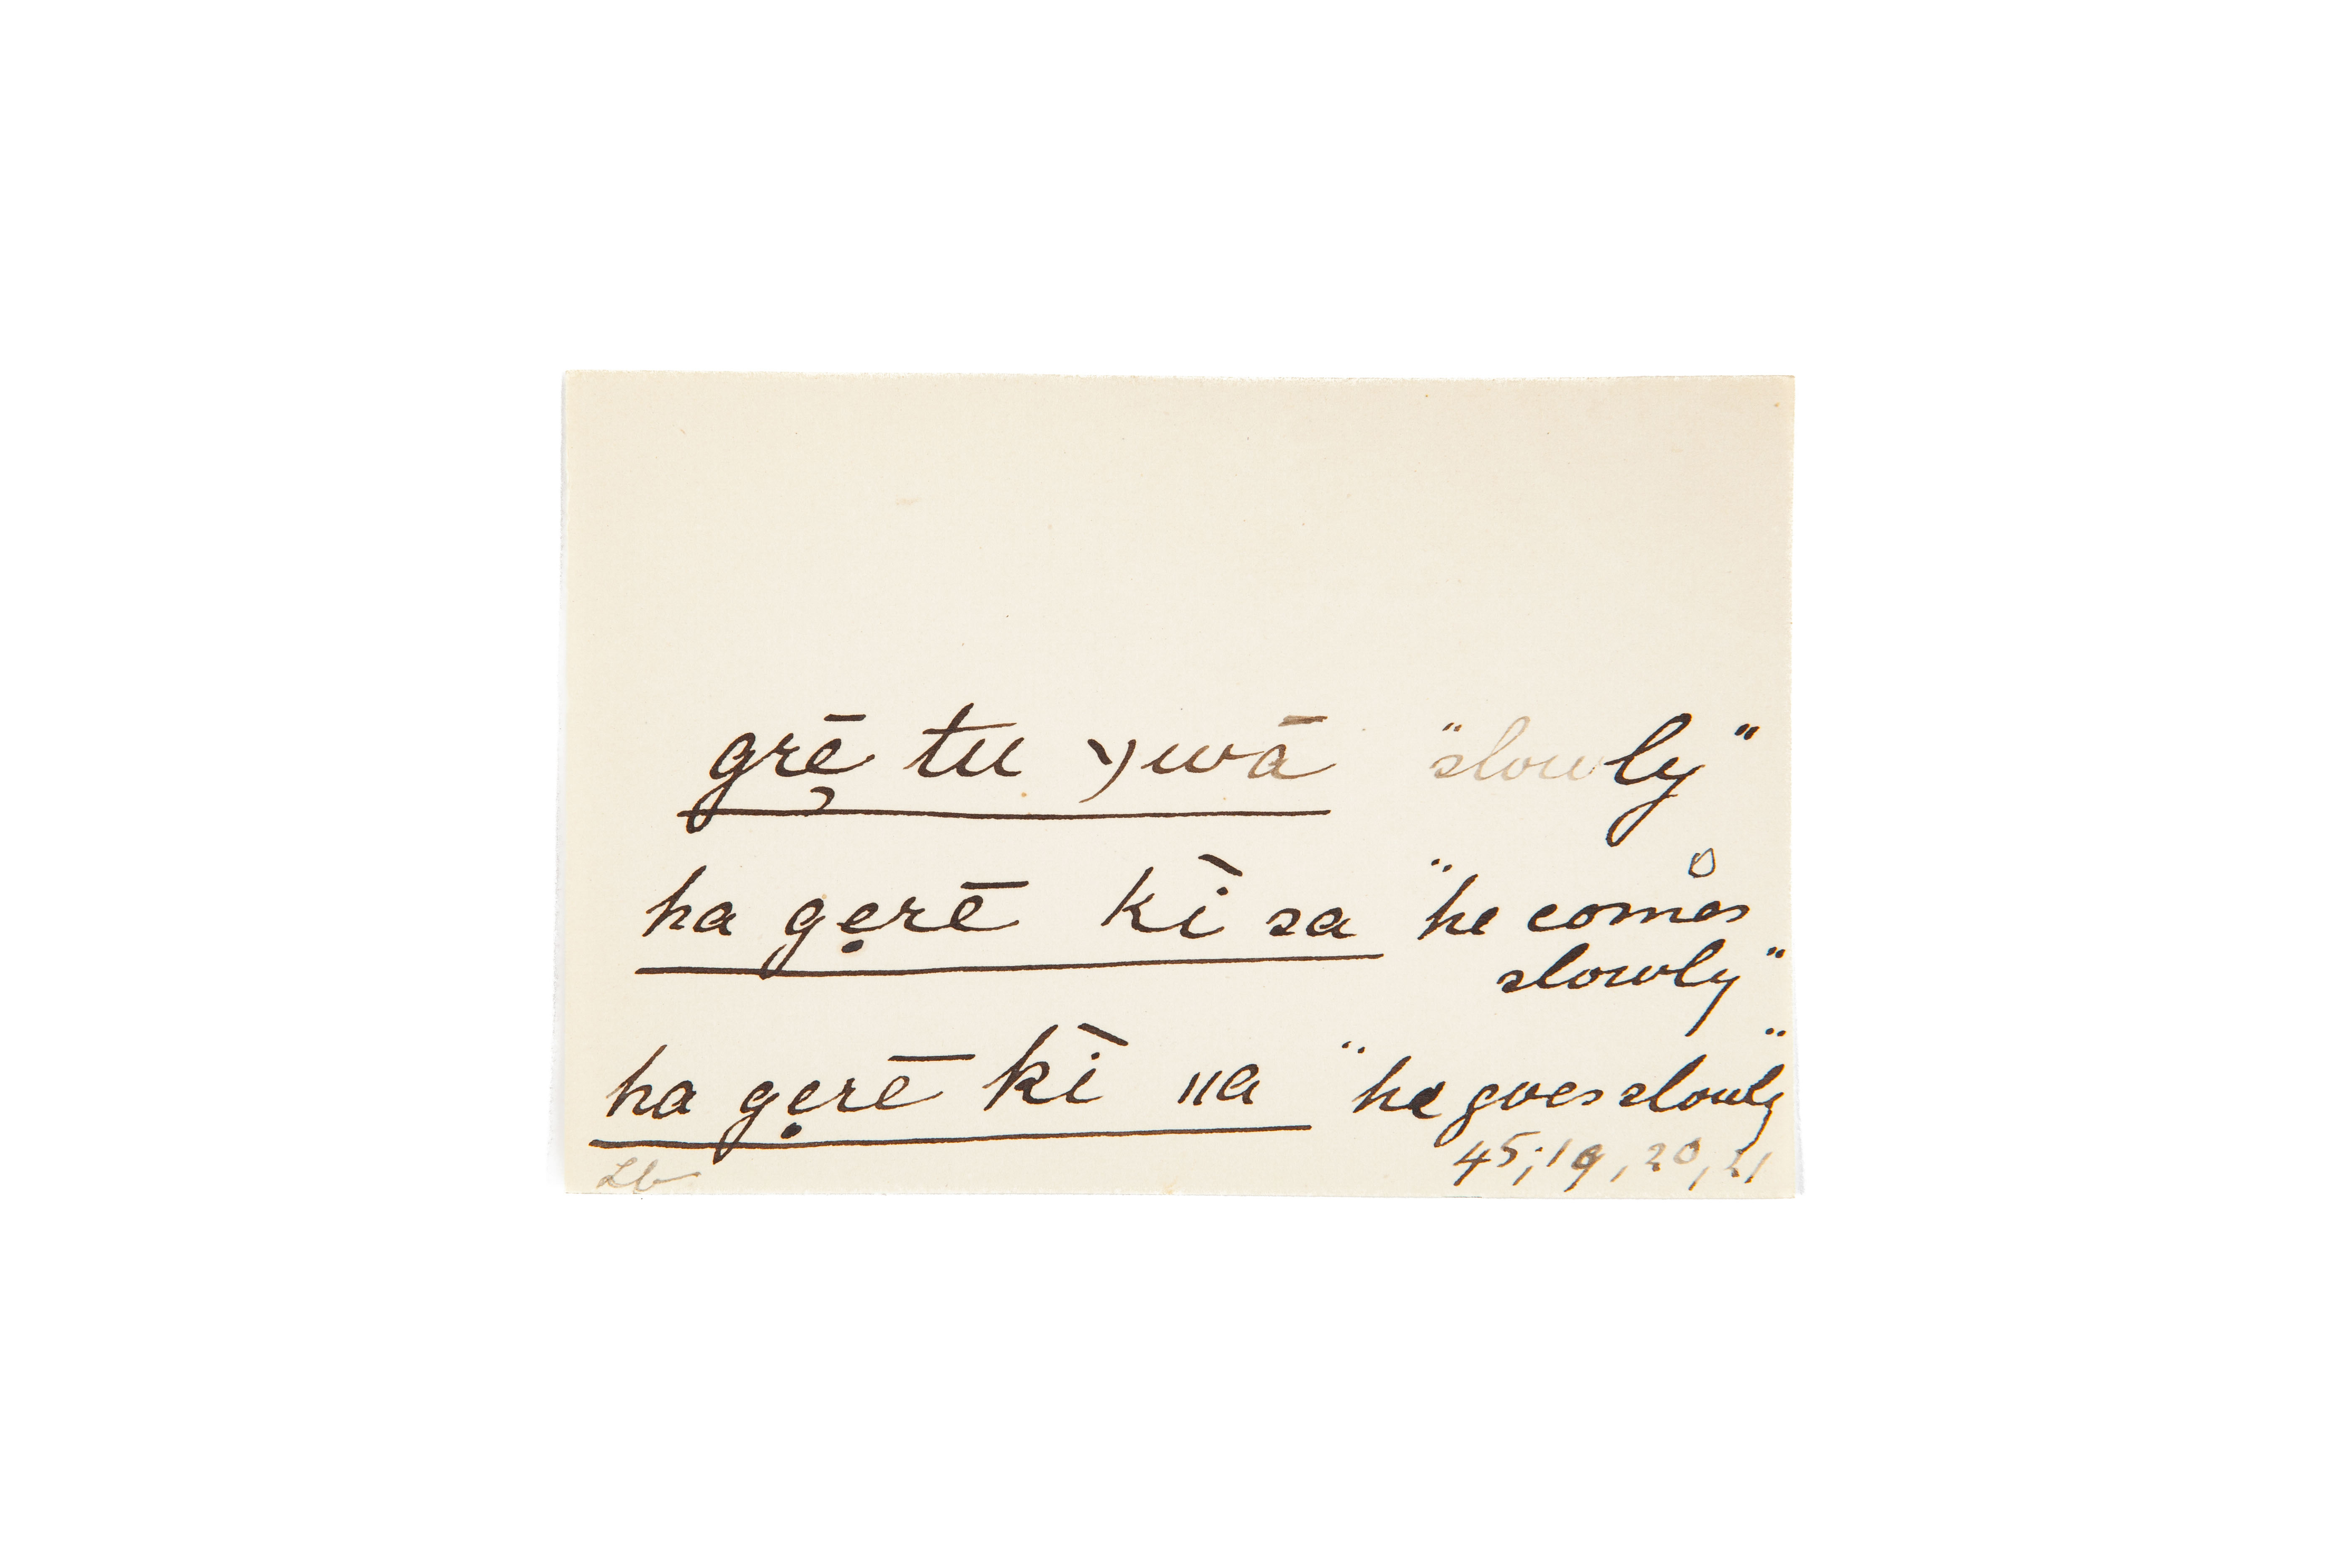 grē̜ tu ꭙwā "slowly"
ha gẹrē kī̀ sa "he comes
slowly"
ha gẹrē kī̀ ǁa "he goes slowly"
Lb 45; 19, 20, 21